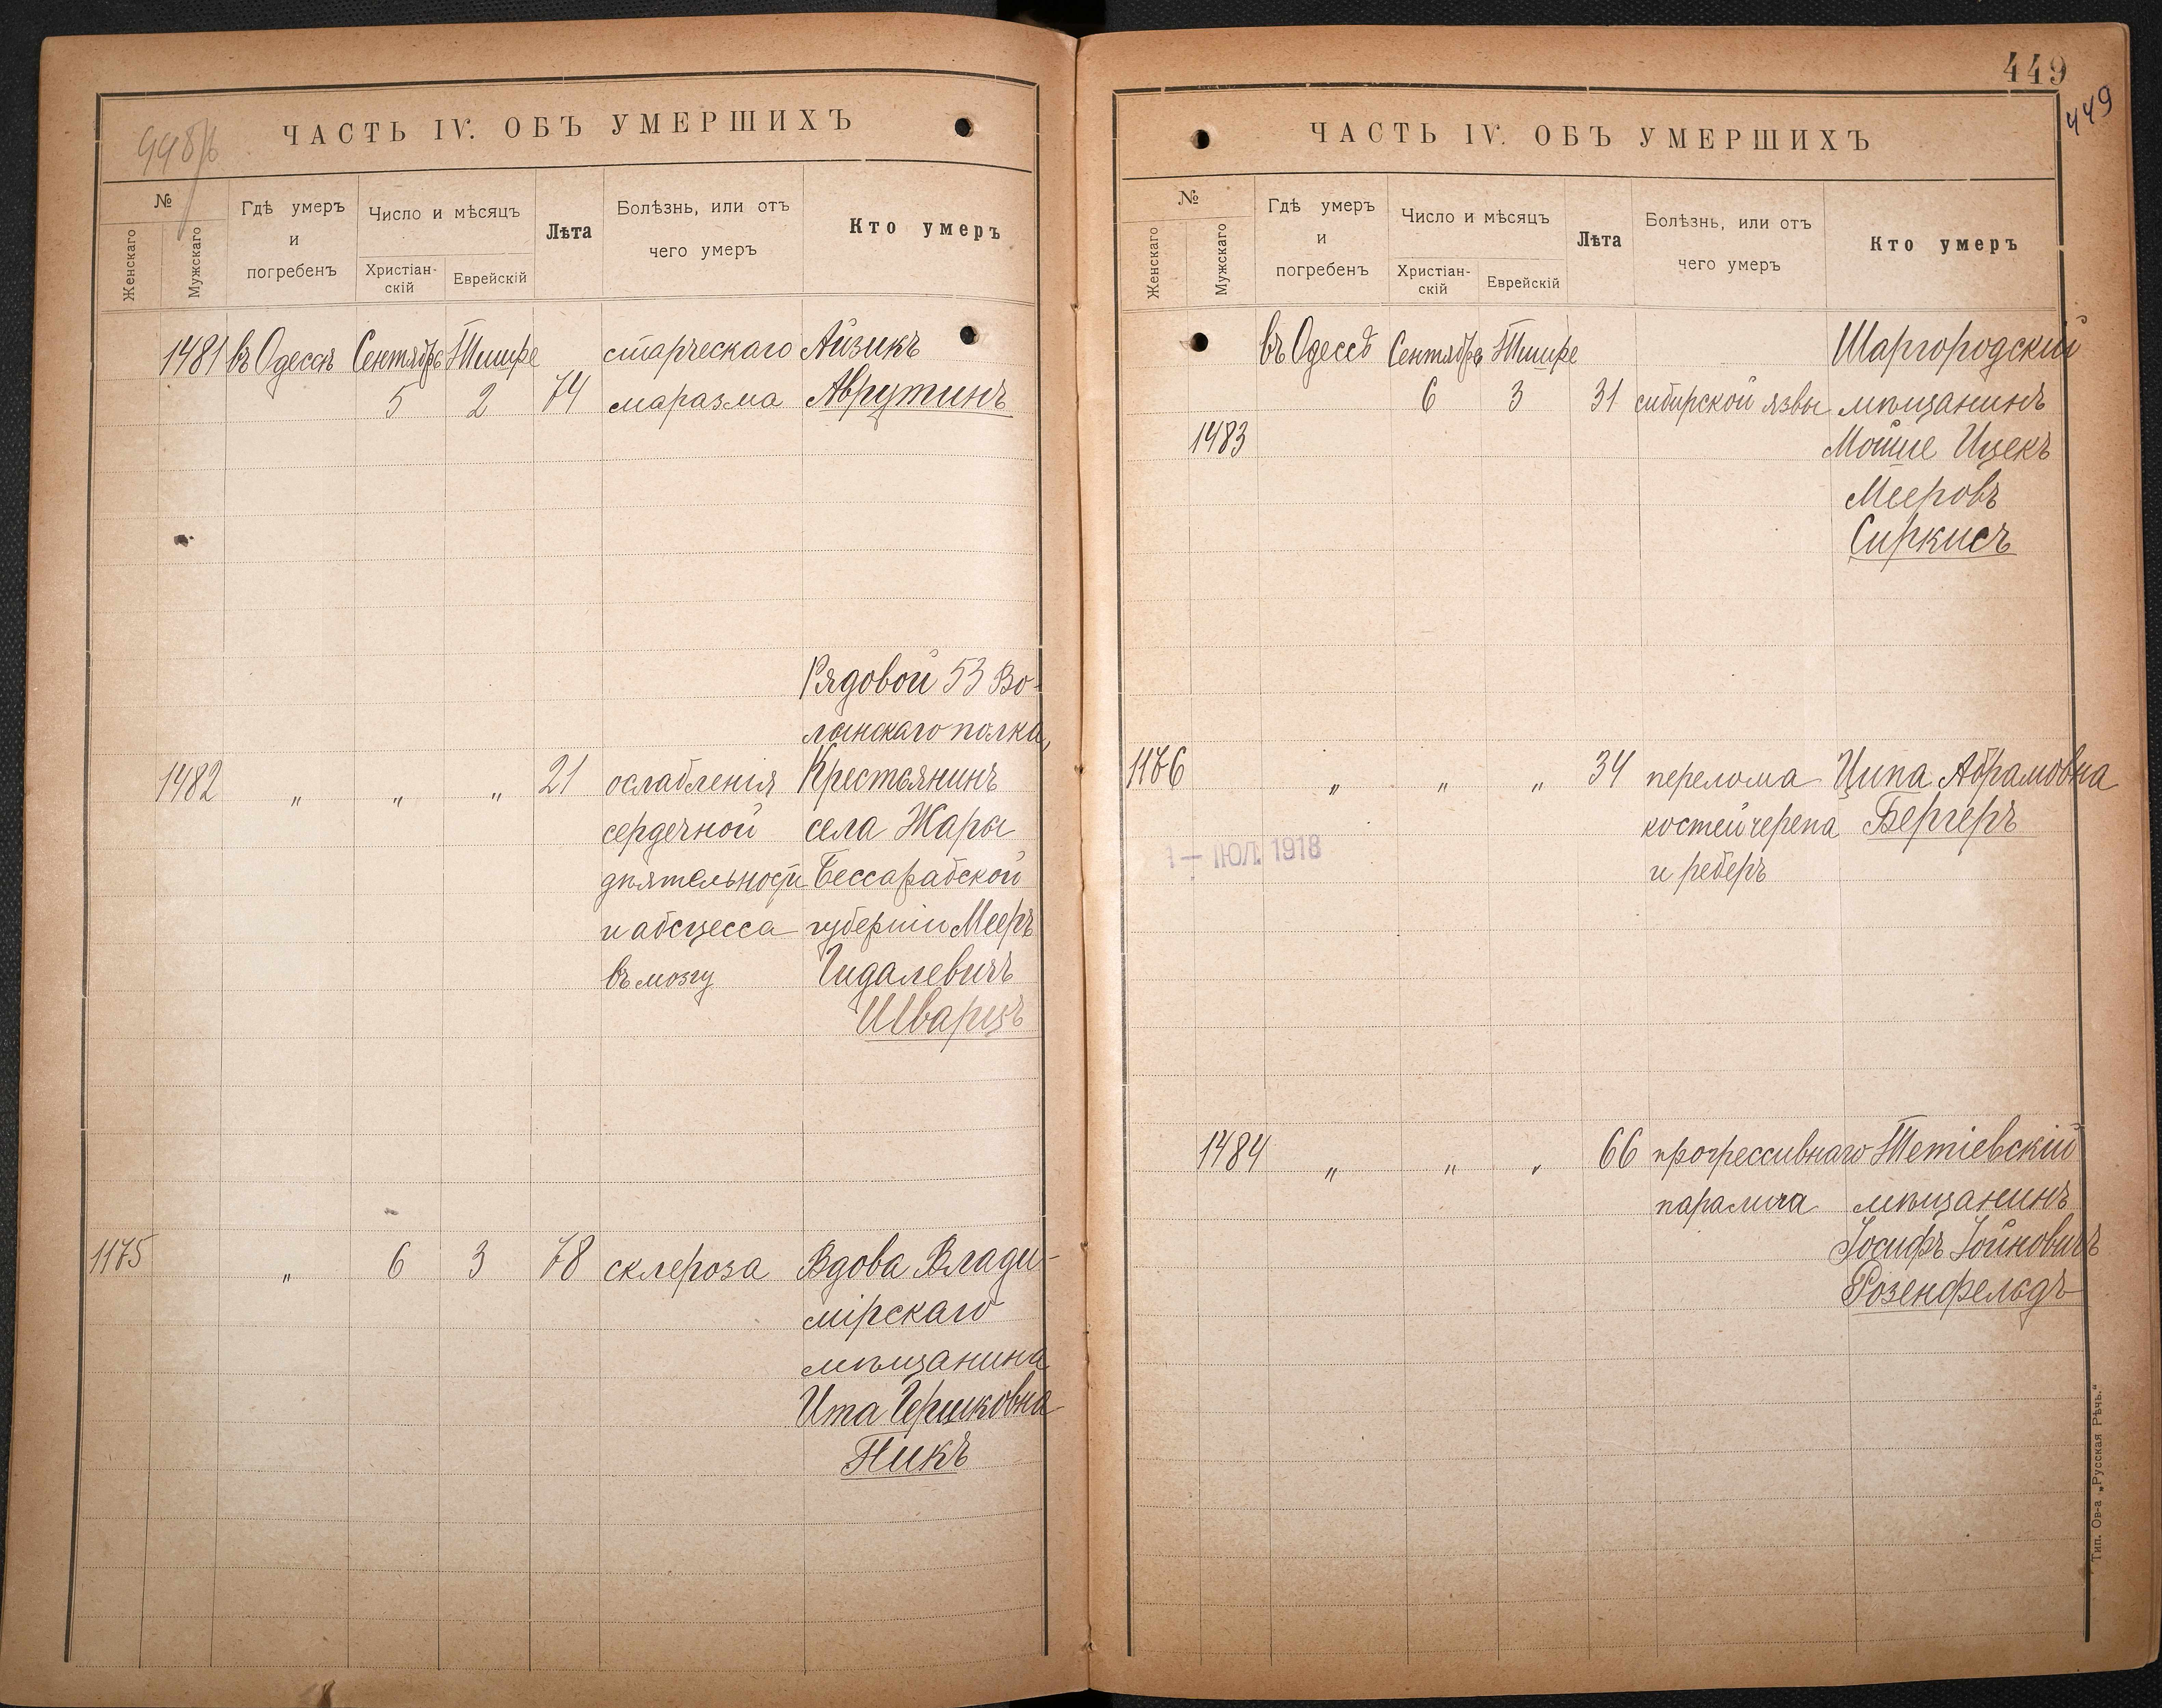 448/б
ЧАСТЬ IV. ОБЪ УМЕРШИХЪ
№
Женскаго
Мужскаго
Гдѣ умеръ
и
погребенъ
Число и мѣсяцъ
Христіан-
скій
Еврейскій
Лѣта
Болѣзнь, или отъ
чего умеръ
Кто умеръ
1481 въ Одессѣ Сентябрь Тишре старческаго Айзикъ
5 2 74 маразма Аврутинъ
Рядовой 53 Во-
лынскаго полка,
1482 „ „ „ 21 ослабленія Крестьянинъ
сердечной села Жары
дѣятельности Бессарабской
и абсцесса губерніи Мееръ
въ мозгу Гидалевичъ
Шварцъ
1175 „ 6 3 78 склероза Вдова Влади-
мірскаго
мѣщанина
Ита Гершковна
Никъ
449
449
ЧАСТЬ IV. ОБЪ УМЕРШИХЪ
№
Женскаго
Мужскаго
Гдѣ умеръ
и
погребенъ
Число и мѣсяцъ
Христіан-
скій
Еврейскій
Лѣта
Болѣзнь, или отъ
чего умеръ
Кто умеръ
въ Одессѣ Сентябрь Тишре Шаргородскій
6 3 31 сибирской язвы мѣщанинъ
1483 Мойше Ицекъ
Мееровъ
Сиркисъ
1176 „ „ „ 34 перелома Ципа Абрамовна
костей черепа Бергеръ
1 — ІЮЛ. 1918
и реберъ
1484 „ „ „ 66 прогрессивнаго Тетіевскій
паралича мѣщанинъ
Іосифъ Іойновичъ
Розенфельдъ
Тип. Ов-а „Русская Рѣчь.“